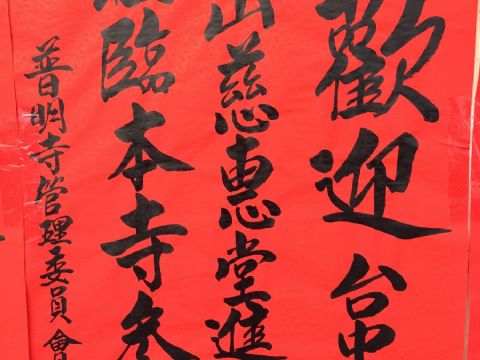 歡迎台中
山慈惠堂進
蒞臨本寺參
普明寺管理委員會